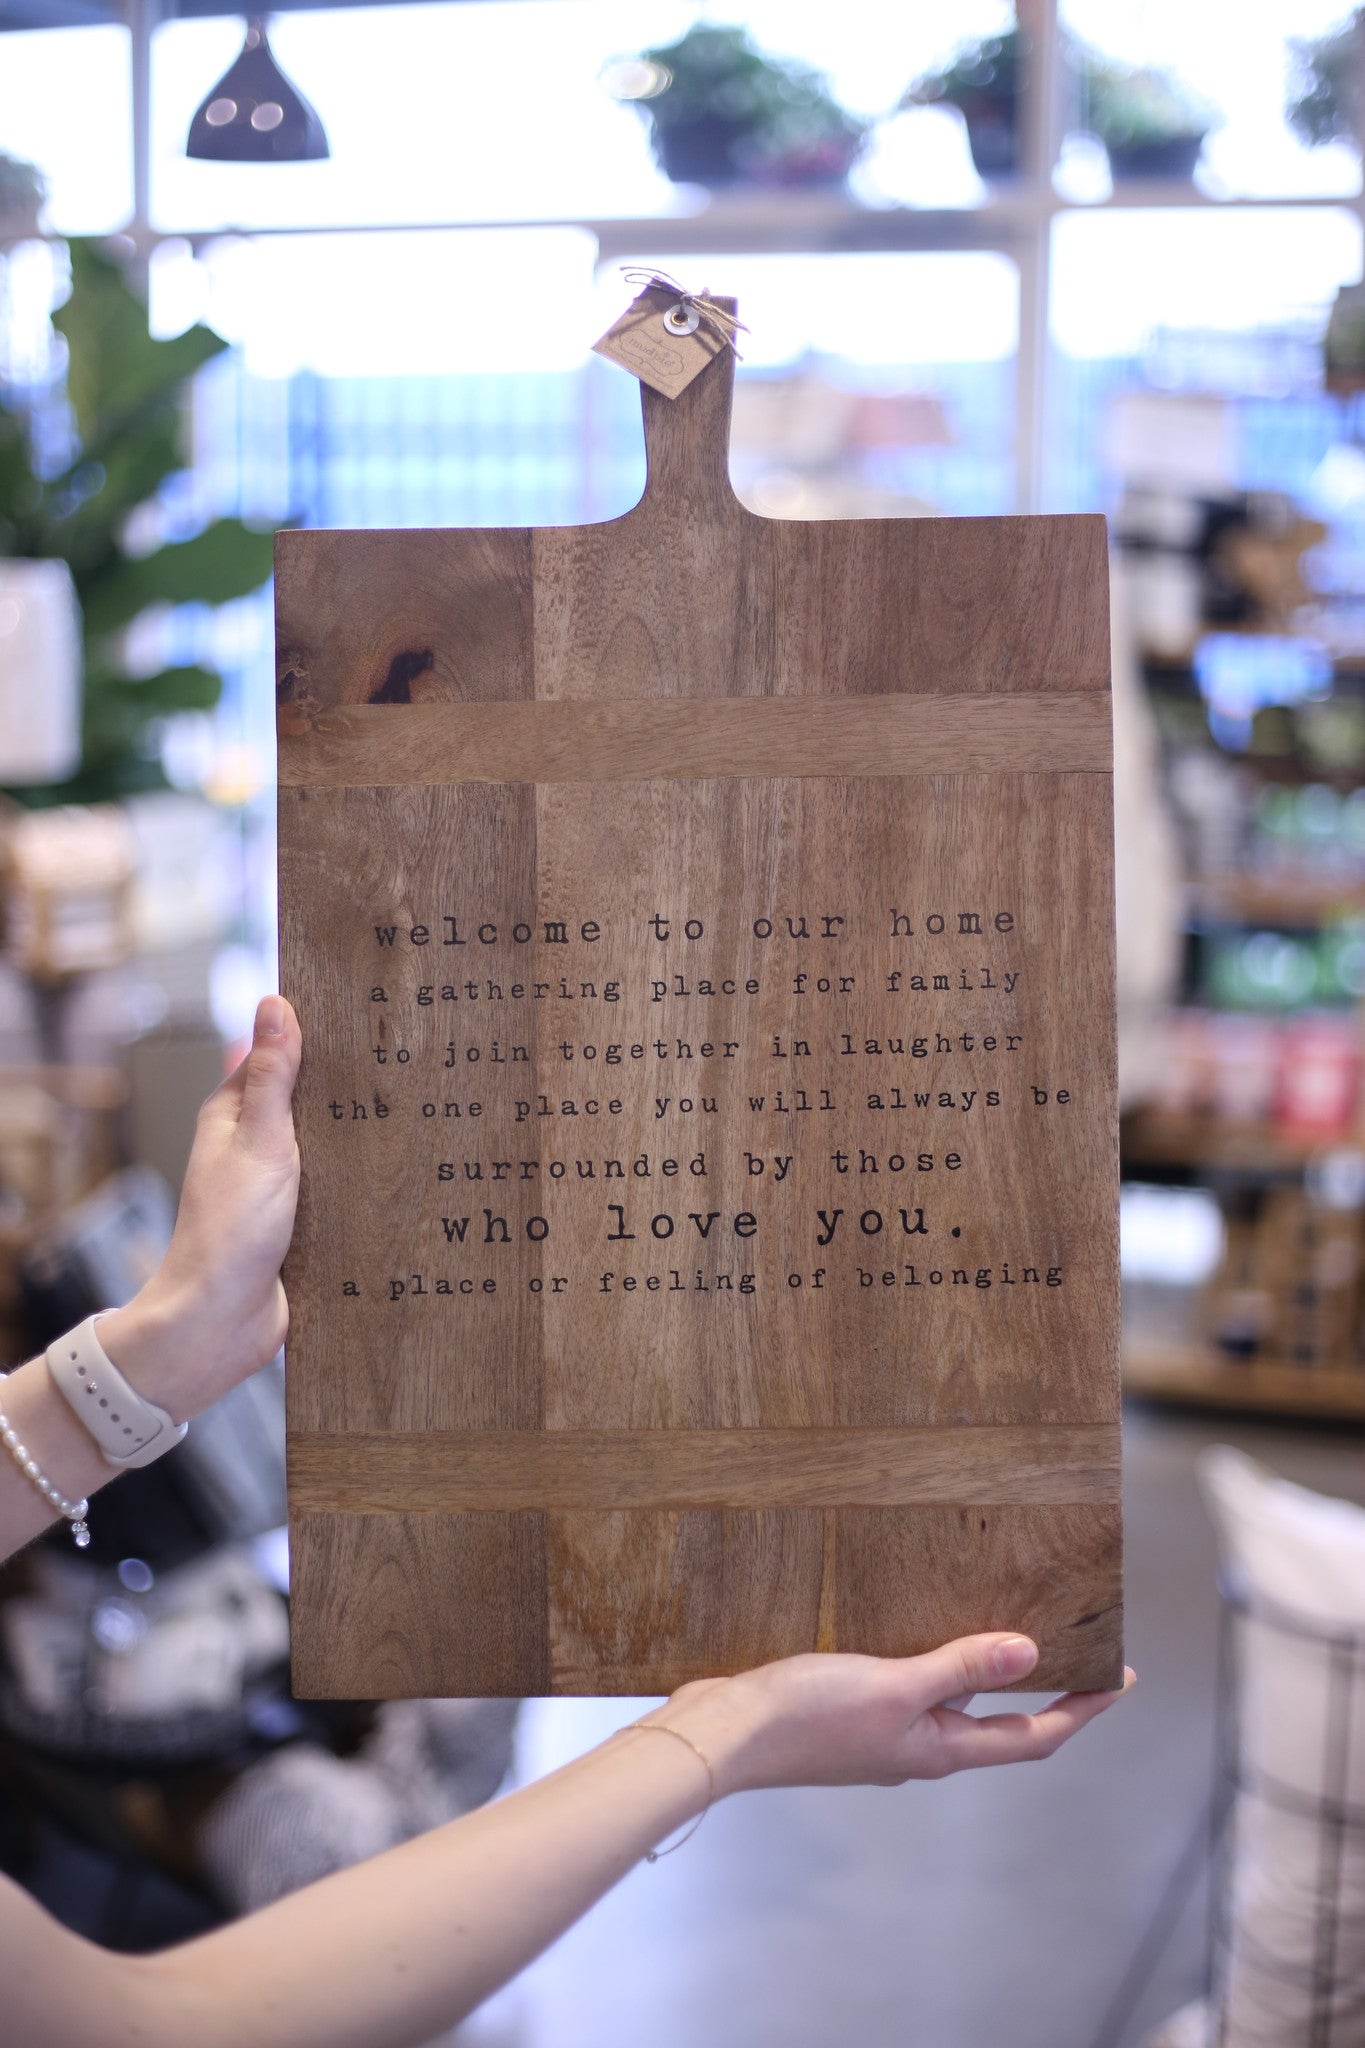 mudpie
welcome to our home
a gathering place for family
to join together in laughter
the one place you will always be
surrounded by those
who love you.
a place or feeling of belonging